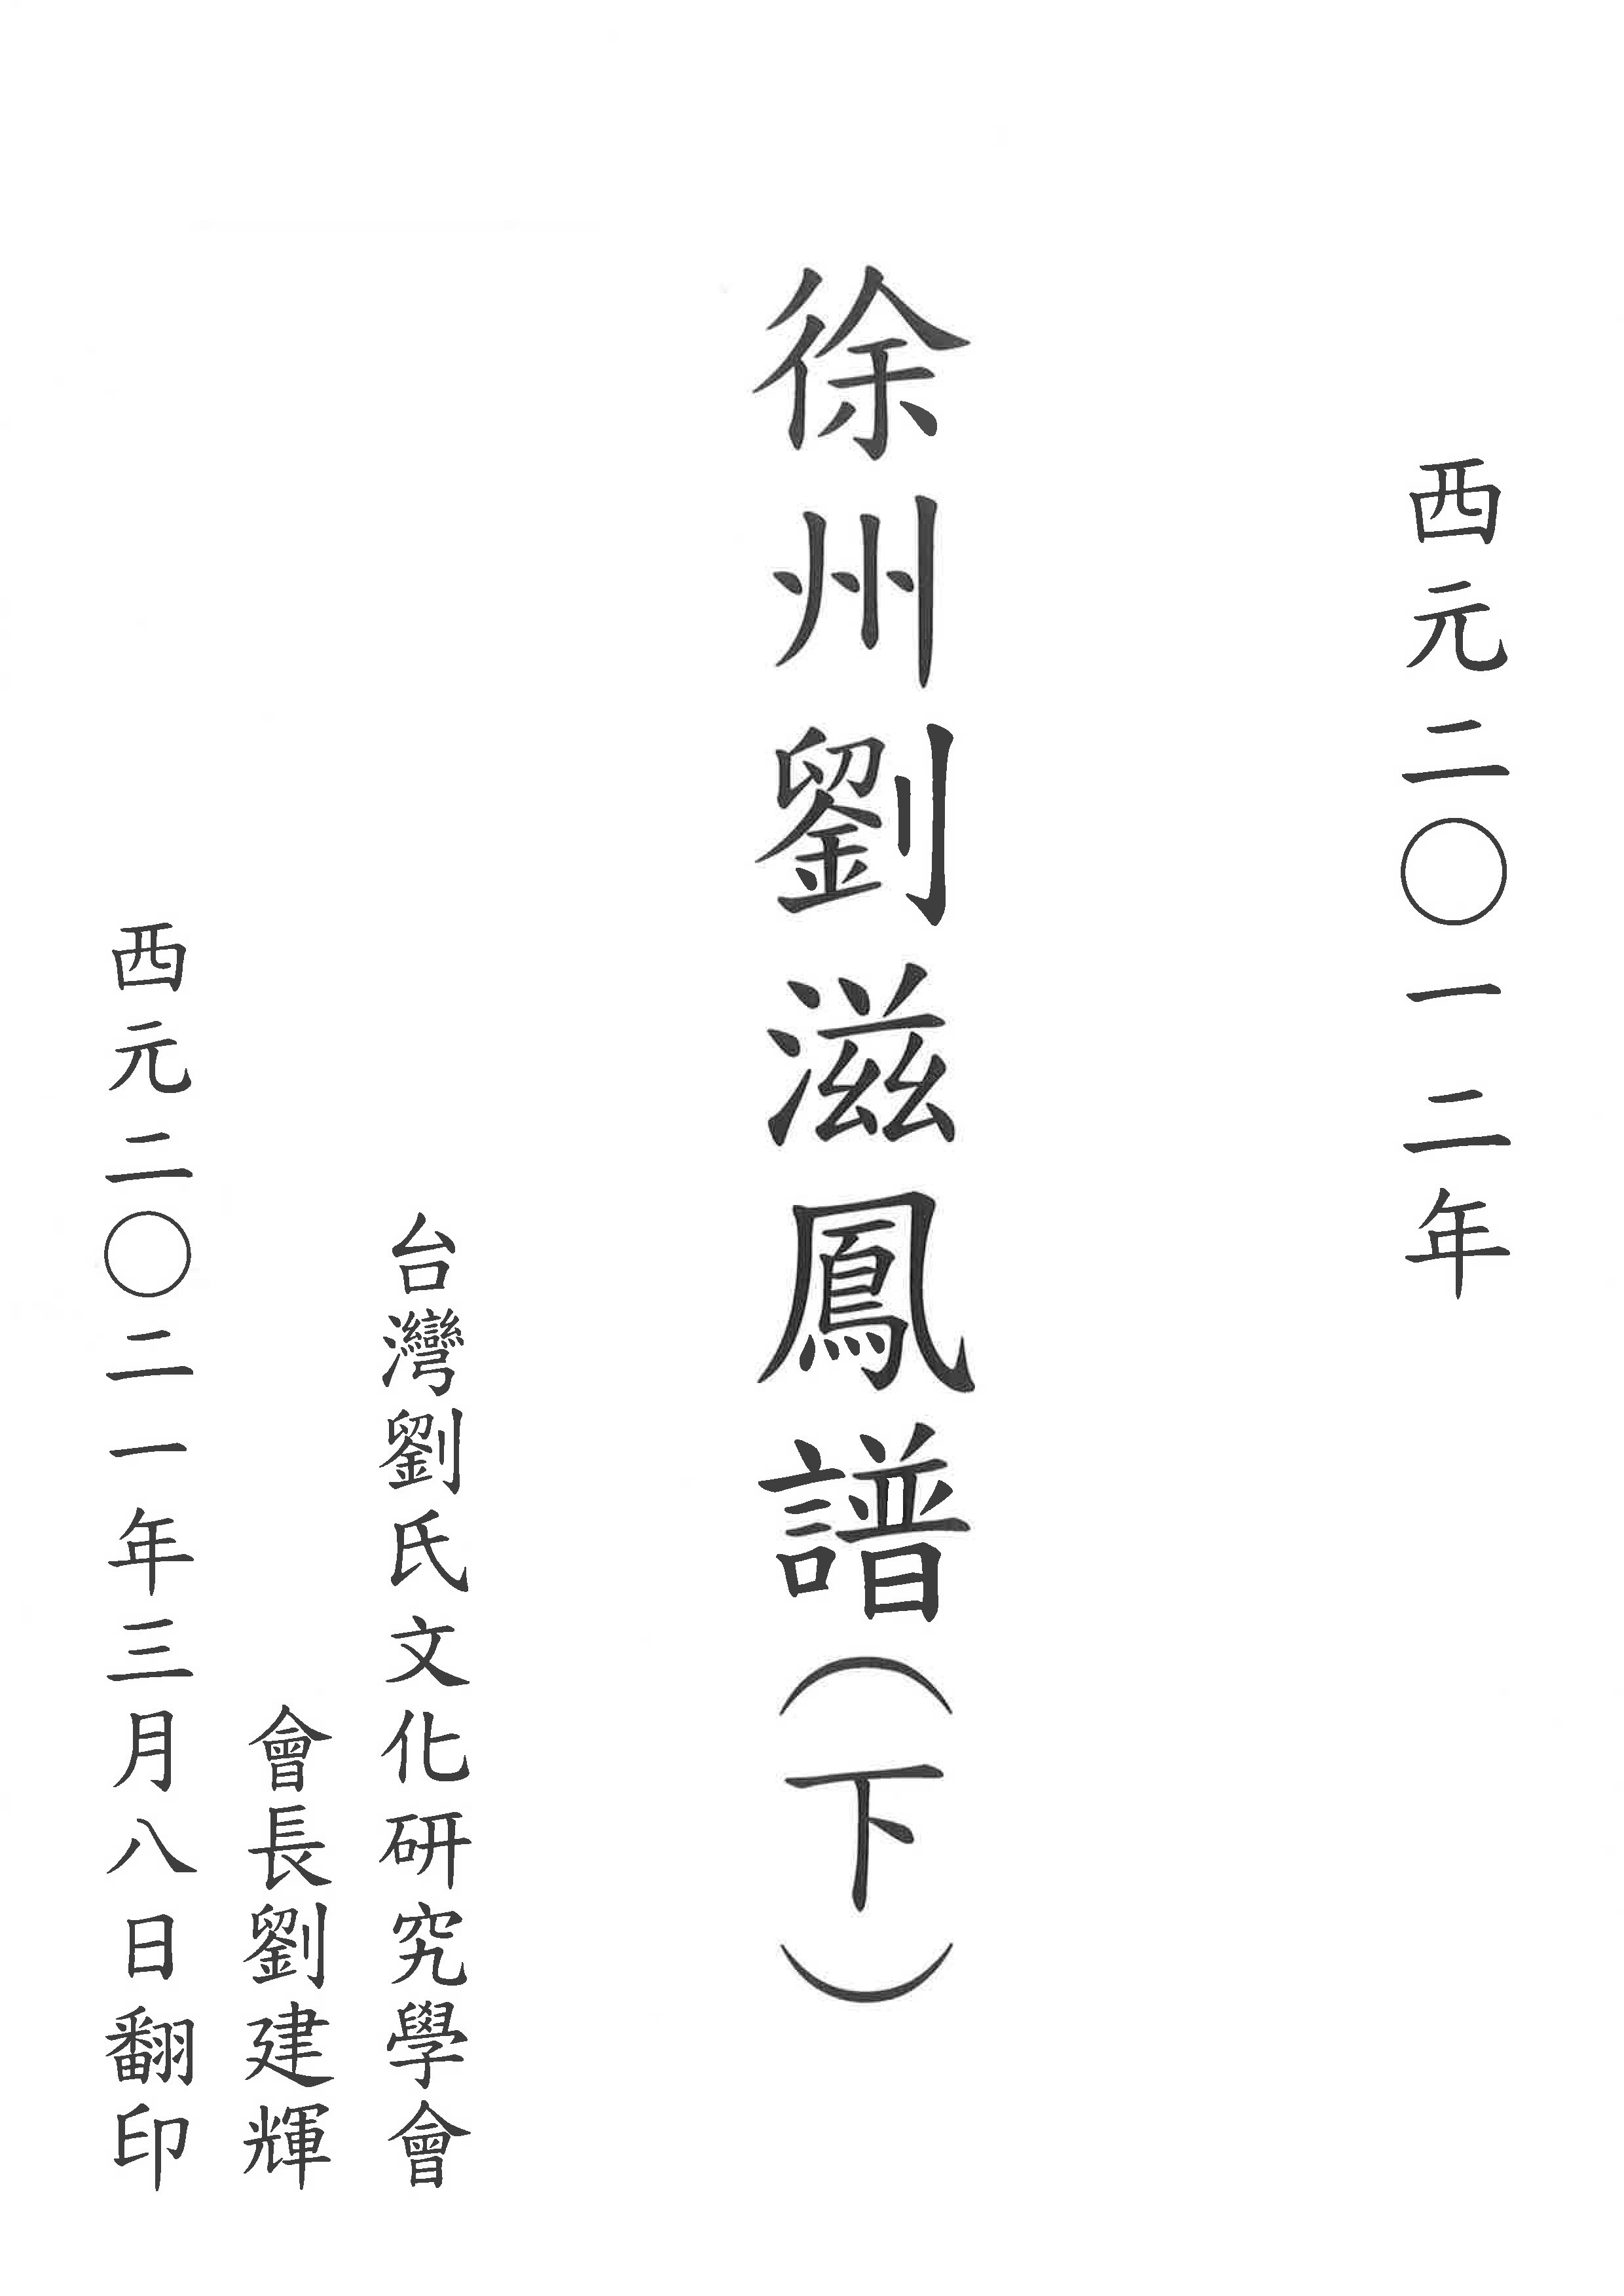 西元二〇一二年
徐州劉滋鳳譜（下）
台灣劉氏文化研究學會
會長劉建輝
西元二〇二一年三月八日翻印